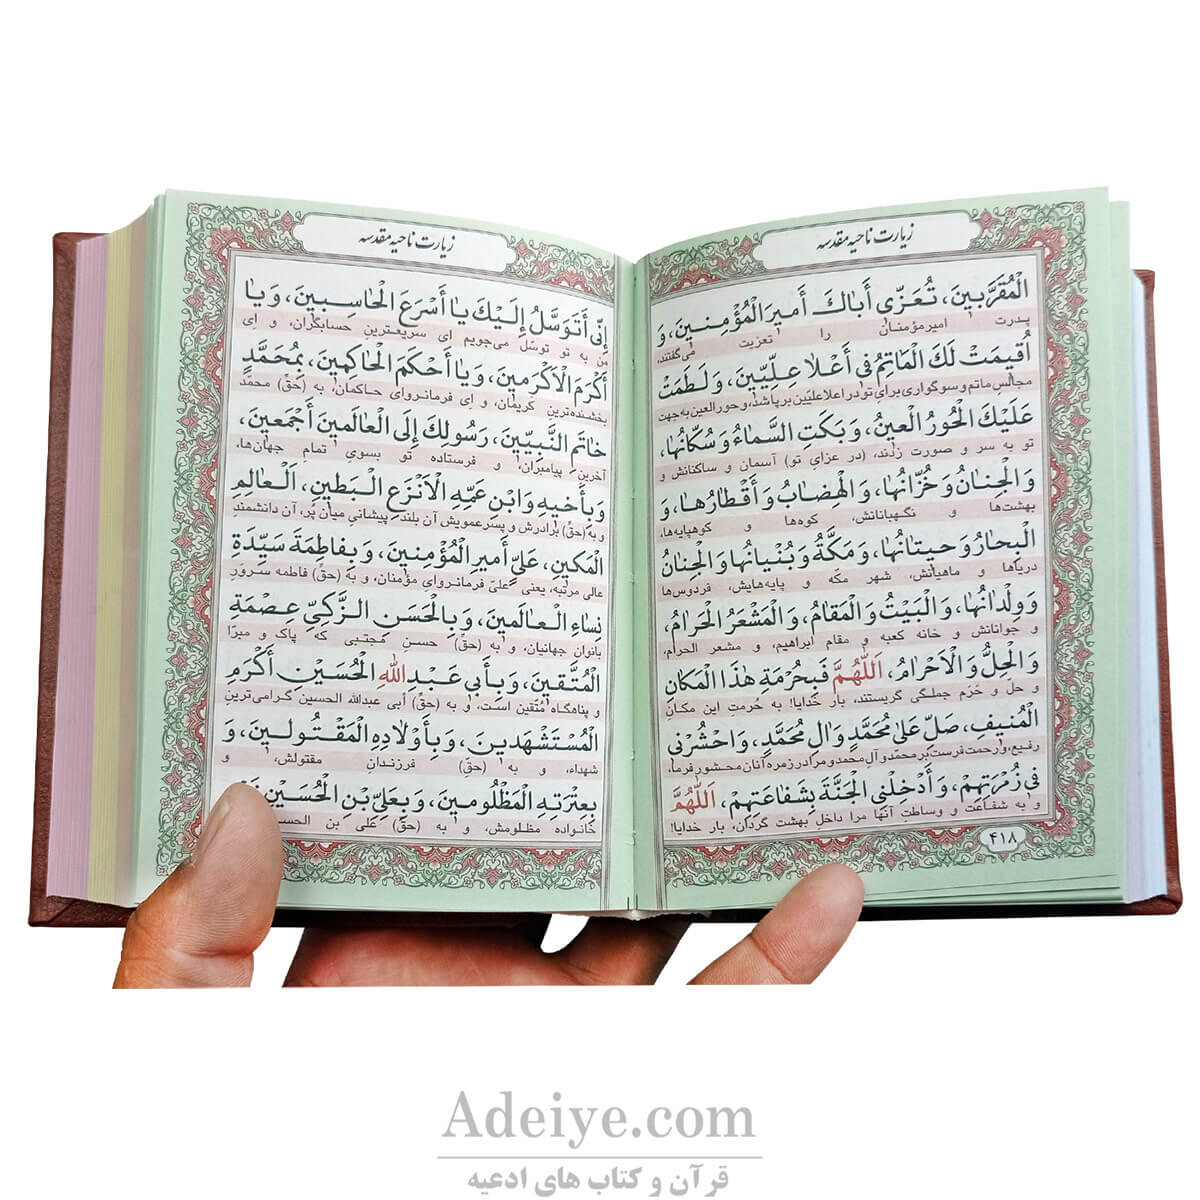 زیارت ناحیه مقدسه
الْمُقَرَّبِينَ، تُعَزّي أَباكَ أَميرَ الْمُؤْمِنينَ، وَ
پدرت امیرمؤمنان را تعزیت می‌گفتند،
اُقيمَتْ لَكَ الْمَاتِمُ في أَعْلا عِلِّيّينَ، وَ لَطَمَتْ
مجالس ماتم و سوگواری برای تو در اعلا علیّین برپا شد، و حورالعین به جهت
عَلَيْكَ الْحُورُ الْعينُ، وَ بَكَتِ السَّماءُ وَ سُكّانُها،
تو به سر و صورت زدند، (در عزای تو) آسمان و ساکنانش و
وَ الْجِنانُ وَ خُزّانُها، وَ الْهِضابُ وَ أَقْطارُها، وَ
بهشت‌ها و نگهبانانش، کوه‌ها و کوهپایه‌ها،
الْبِحارُ وَ حيتانُها، وَ مَكَّةُ وَ بُنْيانُها وَ الْجِنانُ
دریاها و ماهیانش، شهر مکّه و پایه‌هایش، فردوس‌ها
وَ وِلْدانُها، وَ الْبَيْتُ وَ الْمَقامُ، وَ الْمَشْعَرُ الْحَرامُ،
و جوانانش و خانه کعبه و مقام ابراهیم، و مشعر الحرام،
وَ الْحِلُّ وَ الْاَحْرامُ، اَللّٰهُمَّ فَبِحُرْمَةِ هٰذَا الْمَكانِ
و حل و حَرَم جملگی گریستند، بار خدایا! به حُرمتِ این مکان
الْمُنيفِ، صَلِّ عَلىٰ مُحَمَّدٍ وَ الِ مُحَمَّدٍ، وَ احْشُرْني
رفیع، و ارحمت فرست بر محمّد و آل محمد و مرا در زمره آنان محشور فرما،
في زُمْرَتِهِمْ، وَ أَدْخِلْنِي الْجَنَّةَ بِشَفاعَتِهِمْ، اَللّٰهُمَّ
و به شفاعت و وساطتِ آنها مرا داخل بهشت گردان، بار خدایا!
۴۱۸
زیارت ناحیه مقدسه
اِنّي أَتَوَسَّلُ إِلَيْكَ يا أَسْرَعَ الْحاسِبينَ، وَ يا
من به تو توسّل می‌جویم ای سریعترین حسابگران، و ای
أَكْرَمَ الْاَكْرَمينَ، وَ يا أَحْكَمَ الْحاكِمينَ، بِمُحَمَّدٍ
بخشنده‌ترین کریمان، و ای فرمانروای حاکمان، به (حقّ) محمّد
خاتَمِ النَّبِيّينَ، رَسُولِكَ إِلَى الْعالَمينَ أَجْمَعينَ،
آخرین پیامبران، و فرستاده تو بسوی تمام جهان‌ها،
وَ بِأَخيهِ وَ ابْنِ عَمِّهِ الْاَنْزَعِ الْبَطينِ، الْعالِمِ
و به (حقّ) برادرش و پسرعمویش آن بلند پیشانیِ میان پُر، آن دانشمند
الْمَكينِ، عَلِيٍّ أَميرِ الْمُؤْمِنينَ، وَ بِفاطِمَةَ سَيِّدَةِ
عالی مرتبه، یعنی علی فرمانروای مؤمنان، و به (حقّ) فاطمه سرورِ
نِساءِ الْعالَمينَ، وَ بِالْحَسَنِ الزَّكِيِّ عِصْمَةِ
بانوان جهانیان، و به (حقّ) حسنِ مجتبی که پاک و مبرّا
الْمُتَّقينَ، وَ بِأَبي عَبْدِ اللّٰهِ الْحُسَيْنِ أَكْرَمِ
و پناهگاه مُتّقین است، و به (حقّ) أبی عبدالله الحسین گرامی‌ترینِ
الْمُسْتَشْهَدينَ، وَ بِأَوْلادِهِ الْمَقْتُولينَ، وَ
شهداء، و به (حقّ) فرزندانِ مقتولش، و
بِعِتْرَتِهِ الْمَظْلُومينَ، وَ بِعَلِيِّ بْنِ الْحُسَيْنِ
خانواده مظلومش، و به (حقّ) علی بن
Adeiye.com
قرآن و کتاب های ادعیه